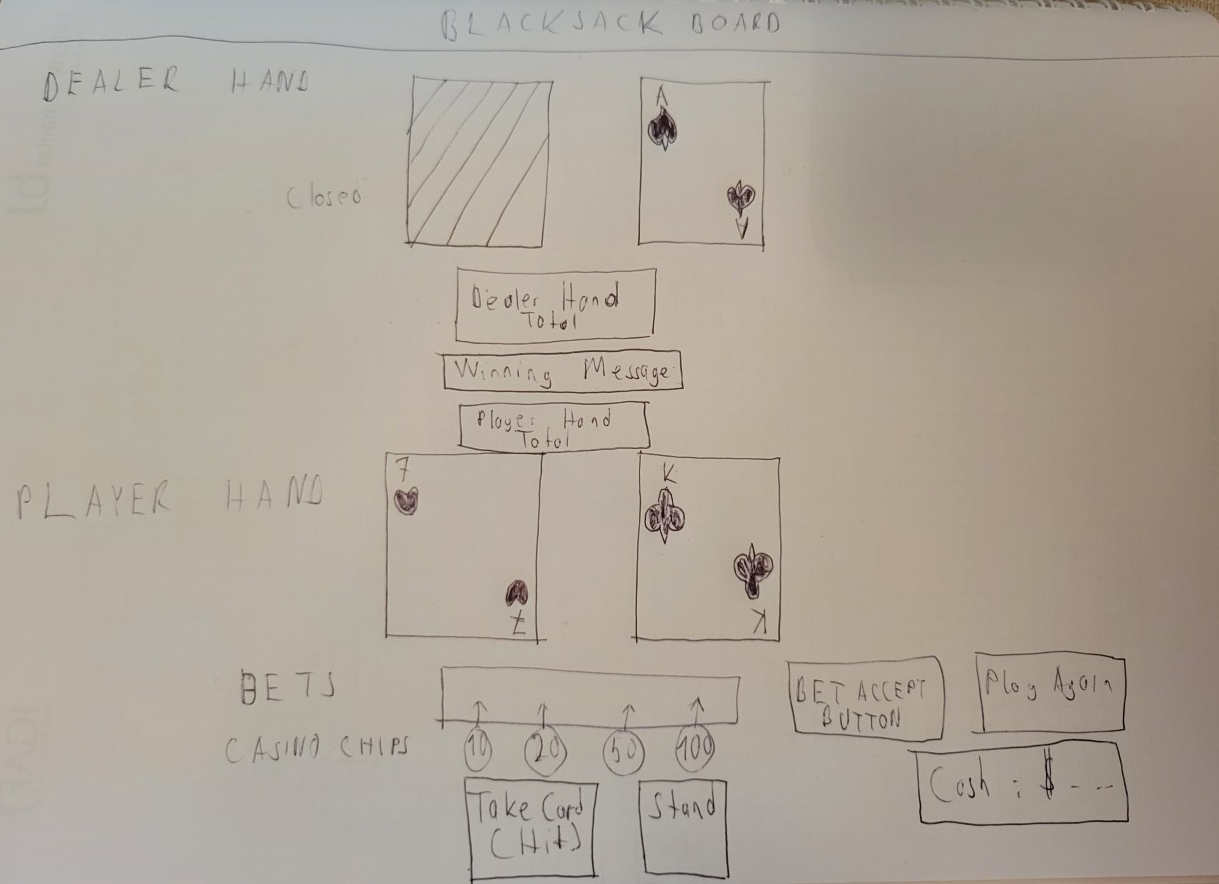 BLACKJACK BOARD
DEALER HAND
Closed
A
A
Dealer Hand
Total
Winning Message
Player Hand
Total
PLAYER HAND
7
7
K
K
BETS
BET ACCEPT
BUTTON
Play Again
CASINO CHIPS
10
20
50
100
Cash : $ - - -
Take Card
(Hit)
Stand